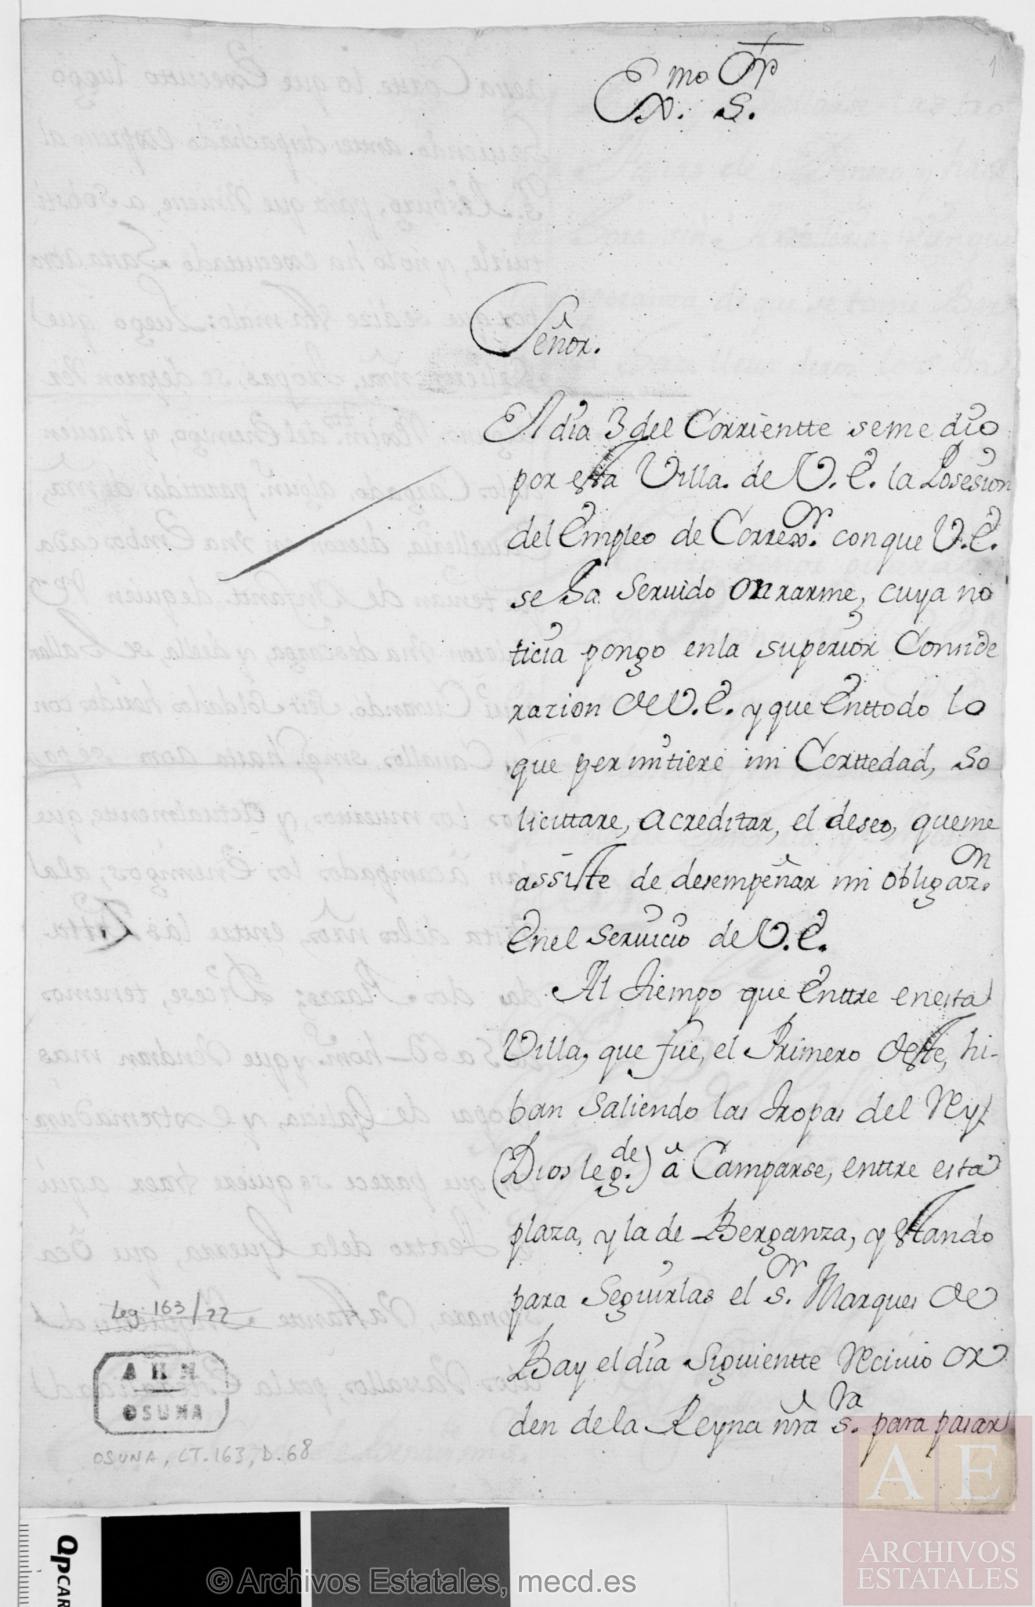 1
Exmo Sr
N. S.
Señor.
El dia 3 del Corriente se me dio
por esta Villa. de V. E. la Posesion
del Empleo de Correxor. con que V. E.
se ha seruido onrarme, cuya no
ticia pongo en la superior Conside
razion de V. E. y que Enttodo lo
que permitiere mi Corttedad, so
licittare, acreditar, el deseo, que me
assiste de desempeñar mi obligazon.
En el seruicio de V. E.
Al tiempo que Enttre en esta
Villa, que fue, el Primero deste, hi-
ban saliendo las tropas del Rey
(Dios le gde.) a Camparse, enttre esta
plaza, y la de Berganza, y estando
para seguirlas el sr. Marques de
Bay el dia siguientte Reciuio or
den de la Reyna nra sra. para pasar
Leg 163/22
A H N
OSUNA
OSUNA, CT. 163, D. 68
QPCAR
© Archivos Estatales, mecd.es
A E
ARCHIVOS
ESTATALES